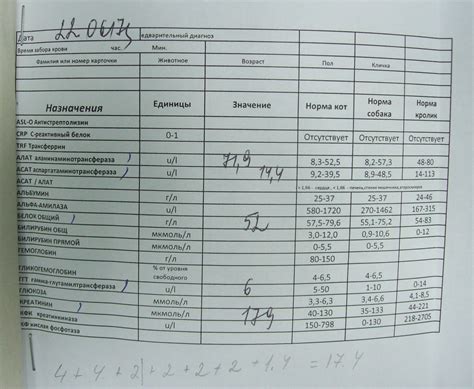 Дата 22 06 17г едварительный диагноз
Время забора крови час. Мин.
Фамилия или номер карточки Животное Возраст Пол Кличка
Назначения Единицы Значение Норма кот Норма собака Норма кролик
ASL-O Антистрептолизин
CRP С-реактивный белок 0-1 Отсутствует Отсутствует Отсутствует
TRF Трансферрин
АЛАТ аланинаминотрансфераза u/l 71,9 8,3-52,5 8,2-57,3 48-80
АСАТ аспартатаминотрансфераза u/l 14,4 9,2-39,5 8,9-48,5 14-113
АСАТ / АЛАТ
АЛЬБУМИН г/л 25-37 25-37 24-46
АЛЬФА-АМИЛАЗА u/l 580-1720 270-1462 167-315
БЕЛОК ОБЩИЙ г/л 52 57,5-79,6 55,1-75,2 54-83
БИЛИРУБИН ОБЩ мкмоль/л 3,0-12,0 0,9-10,6 0-12
БИЛИРУБИН ПРЯМОЙ мкмоль/л 0-5,5 0-5,5
ГЕМОГЛОБИН г/л 80-150
ГЛИКОГЕМОГЛОБИН % от уровня свободного 4-6,5 4-6,5
ГГТ гамма-глутамилтрансфераза u/l 6 5-50 1-10 0-14
ГЛЮКОЗА ммоль/л 3,3-6,3 3,4-6,6 4,1-8,5
КРЕАТИНИН мкмоль/л 179 40-130 35-133 44-221
КФК креатинкиназа u/l 150-798 0-130 218-2705
КФ кислая фосфотаза
4+4+2+2+2+2+1,4 = 17.4